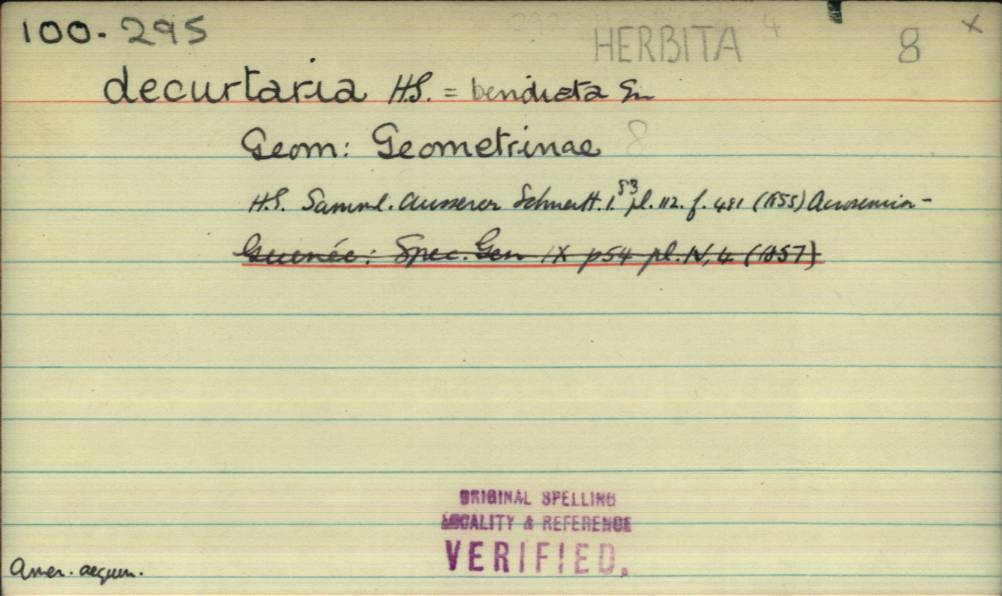 100-295 HERBITA 4 8 x
decurtaria H.S. = bendiata Gn
Geom: Geometrinae 8
H.S. Samml. Ausserer Schmett. 1. 53 pl. 112. f. 481 (1855)
Guenée: Spec. Gen IX p54 pl. IV, 4 (1857)
ORIGINAL SPELLING
LOCALITY & REFERENCE
VERIFIED.
Amer. aequin.